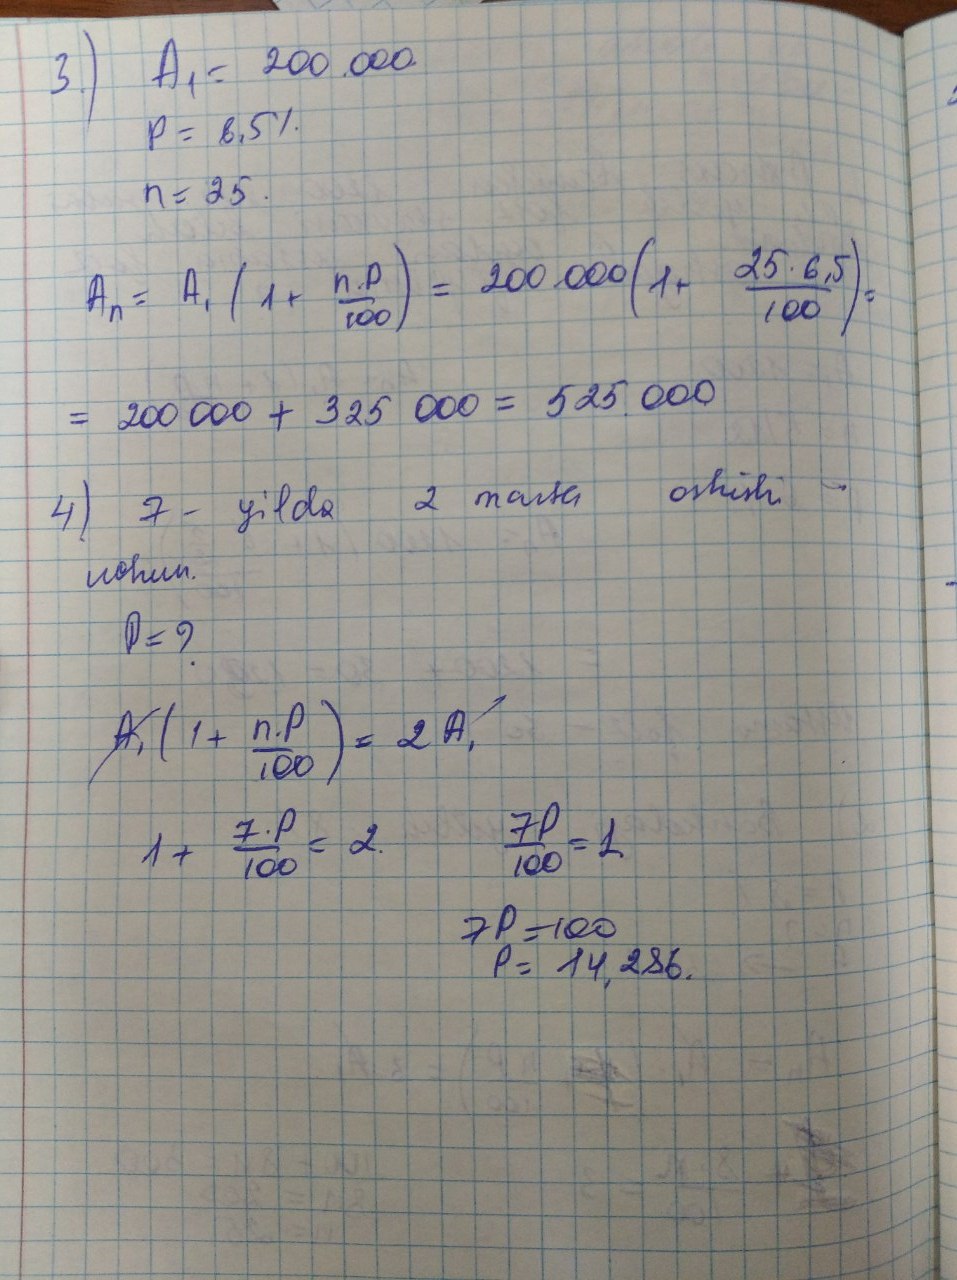 3.) A₁ = 200.000
P = 6,5%.
n = 25.
Aₙ = A₁ (1 + n.P/100) = 200.000 (1 + 25.6,5/100) =
= 200 000 + 325 000 = 525.000
4) 7 - yilda 2 marta oshishi -
uchun.
P = ?
A₁ (1 + n.P/100) = 2 A₁
1 + 7.P/100 = 2. 7P/100 = 1
7P = 100
P = 14,286.